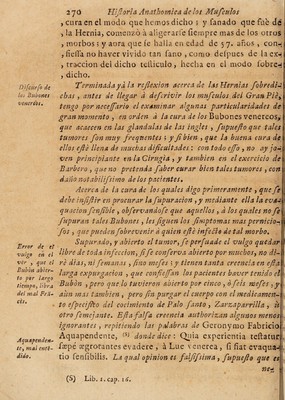 270 Historia Anathomica de los Musculos
, cura en el modo que hemos dicho ; y sanado que fuè de
, la Hernia, comenzò à aligerarse siempre mas de los otros
, morbos ; y aora que se halla en edad de 57. años , con-
, fiessa no haver vivido tan sano, como despues de la ex-
, traccion del dicho testiculo , hecha en el modo sobre-
, dicho.
Discurso de los Bubones venereos.
Terminada yà la reflexion acerca de las Hernias sobredi-
chas , antes de llegar à describir los musculos del Gran Piè,
tengo por necessario el examinar algunas particularidades de
gran momento, en orden à la cura de los Bubones venereos,
que acaecen en las glandulas de las ingles , supuesto que tales
tumores son muy frequentes ; y si bien , que la buena cura de
ellos estè llena de muchas dificultades : con todo esso , no ay jo-
ven principiante en la Cirugia , y tambien en el exercicio de
Barbero , que no pretenda saber curar bien tales tumores , con
daño notabilissimo de los pacientes.
Acerca de la cura de los quales digo primeramente , que se
debe insistir en procurar la supuracion , y mediante ella la eva-
quacion sensible , observandose que aquellos , à los quales no se
supuran tales Bubones , les siguen los symptomas mas pernicio-
sos , que pueden sobrevenir à quien estè infecto de tal morbo.
Error de el vulgo en el ver , que el Bubon abierto por largo tiempo, libra del mal Francès.
Supurado, y abierto el tumor, se persuade el vulgo quedar
libre de toda infeccion, si se conserva abierto por muchos, no di-
rè dias, ni semanas , sino meses ; y tienen tanta creencia en esta
larga expurgacion , que confiessan los pacientes haver tenido el
Bubòn , pero que lo tuvieron abierto por cinco , ò seis meses , y
aùn mas tambien , pero sin purgar el cuerpo con el medicamen-
to especifico del cocimiento de Palo santo , Zarzaparrilla , ù
otro semejante. Esta falsa creencia authorizan algunos menos
ignorantes , repitiendo las palabras de Geronymo Fabricio
Aquapendente, mal entendido.
Aquapendente, (S) donde dice : Quia experientia testatur
sæpè ægrotantes evadere , à Lue venerea , si fiat evaqua-
tio sensibilis. La qual opinion es falsissima, supuesto que es
ne-
(S) Lib. 1. cap. 16.